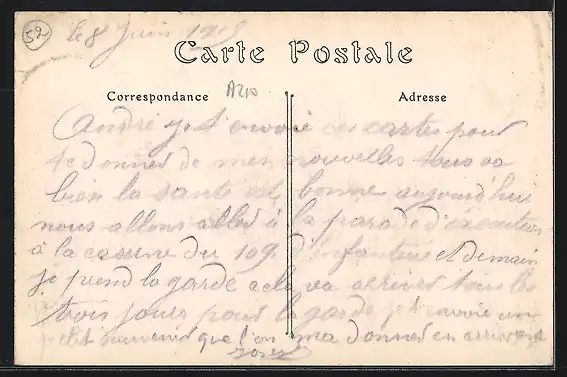 52
le 8 Juin 1915
Carte Postale
A210
Correspondance
Adresse
André je t'envoie ces cartes pour
te donner de mes nouvelles tous va
bien la santé est bonne aujourd'hui
nous allons aller à la parade d'exécution
à la caserne du 109 d'infanterie et Demain
je prend la garde cela va arriver tous les
trois jours pour la garde je t'envoie un
petit souvenir que l'on ma donner en arrivant